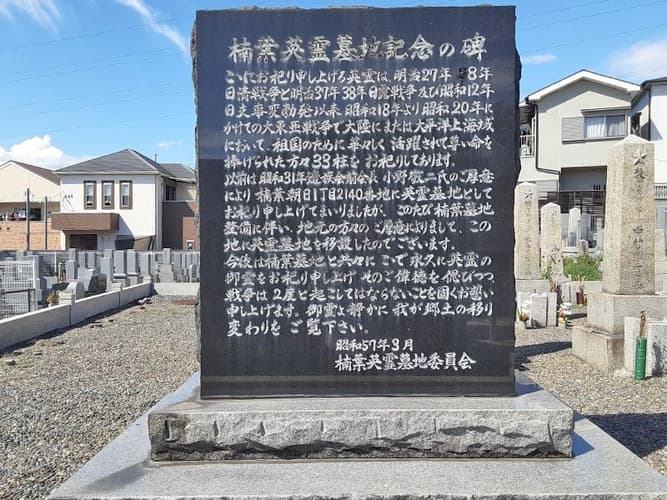 楠葉英霊墓地記念の碑
ここにお祀り申し上げる英霊は、明治27年28年
日清戦争と明治37年38年日露戦争及び昭和12年
日支事変勃発以来 昭和18年より昭和20年に
かけての大東亜戦争で大陸にまたは大平洋上海域
において、祖国のために華々しく活躍されて尊い命を
捧げられた方々33柱をお祀りしております。
以前は昭和31年遺族会前会長 小野 二氏の厚意
により 楠葉朝日1丁目2140番地に英霊墓地として
お祀り申し上げてまいりましたが、このたび楠葉墓地
整備に伴い、地元の方々のご厚意によりまして、この
地に英霊墓地を移設したのでございます。
今後は楠葉墓地と共々にここで永久に英霊の
御霊をお祀り申し上げ そのご偉徳を偲びつつ
戦争は2度と起こしてはならないことを固くお誓い
申し上げます。御霊よ静かに 我が郷土の移り
変わりをご覧下さい。
昭和57年3月
楠葉英霊墓地委員会